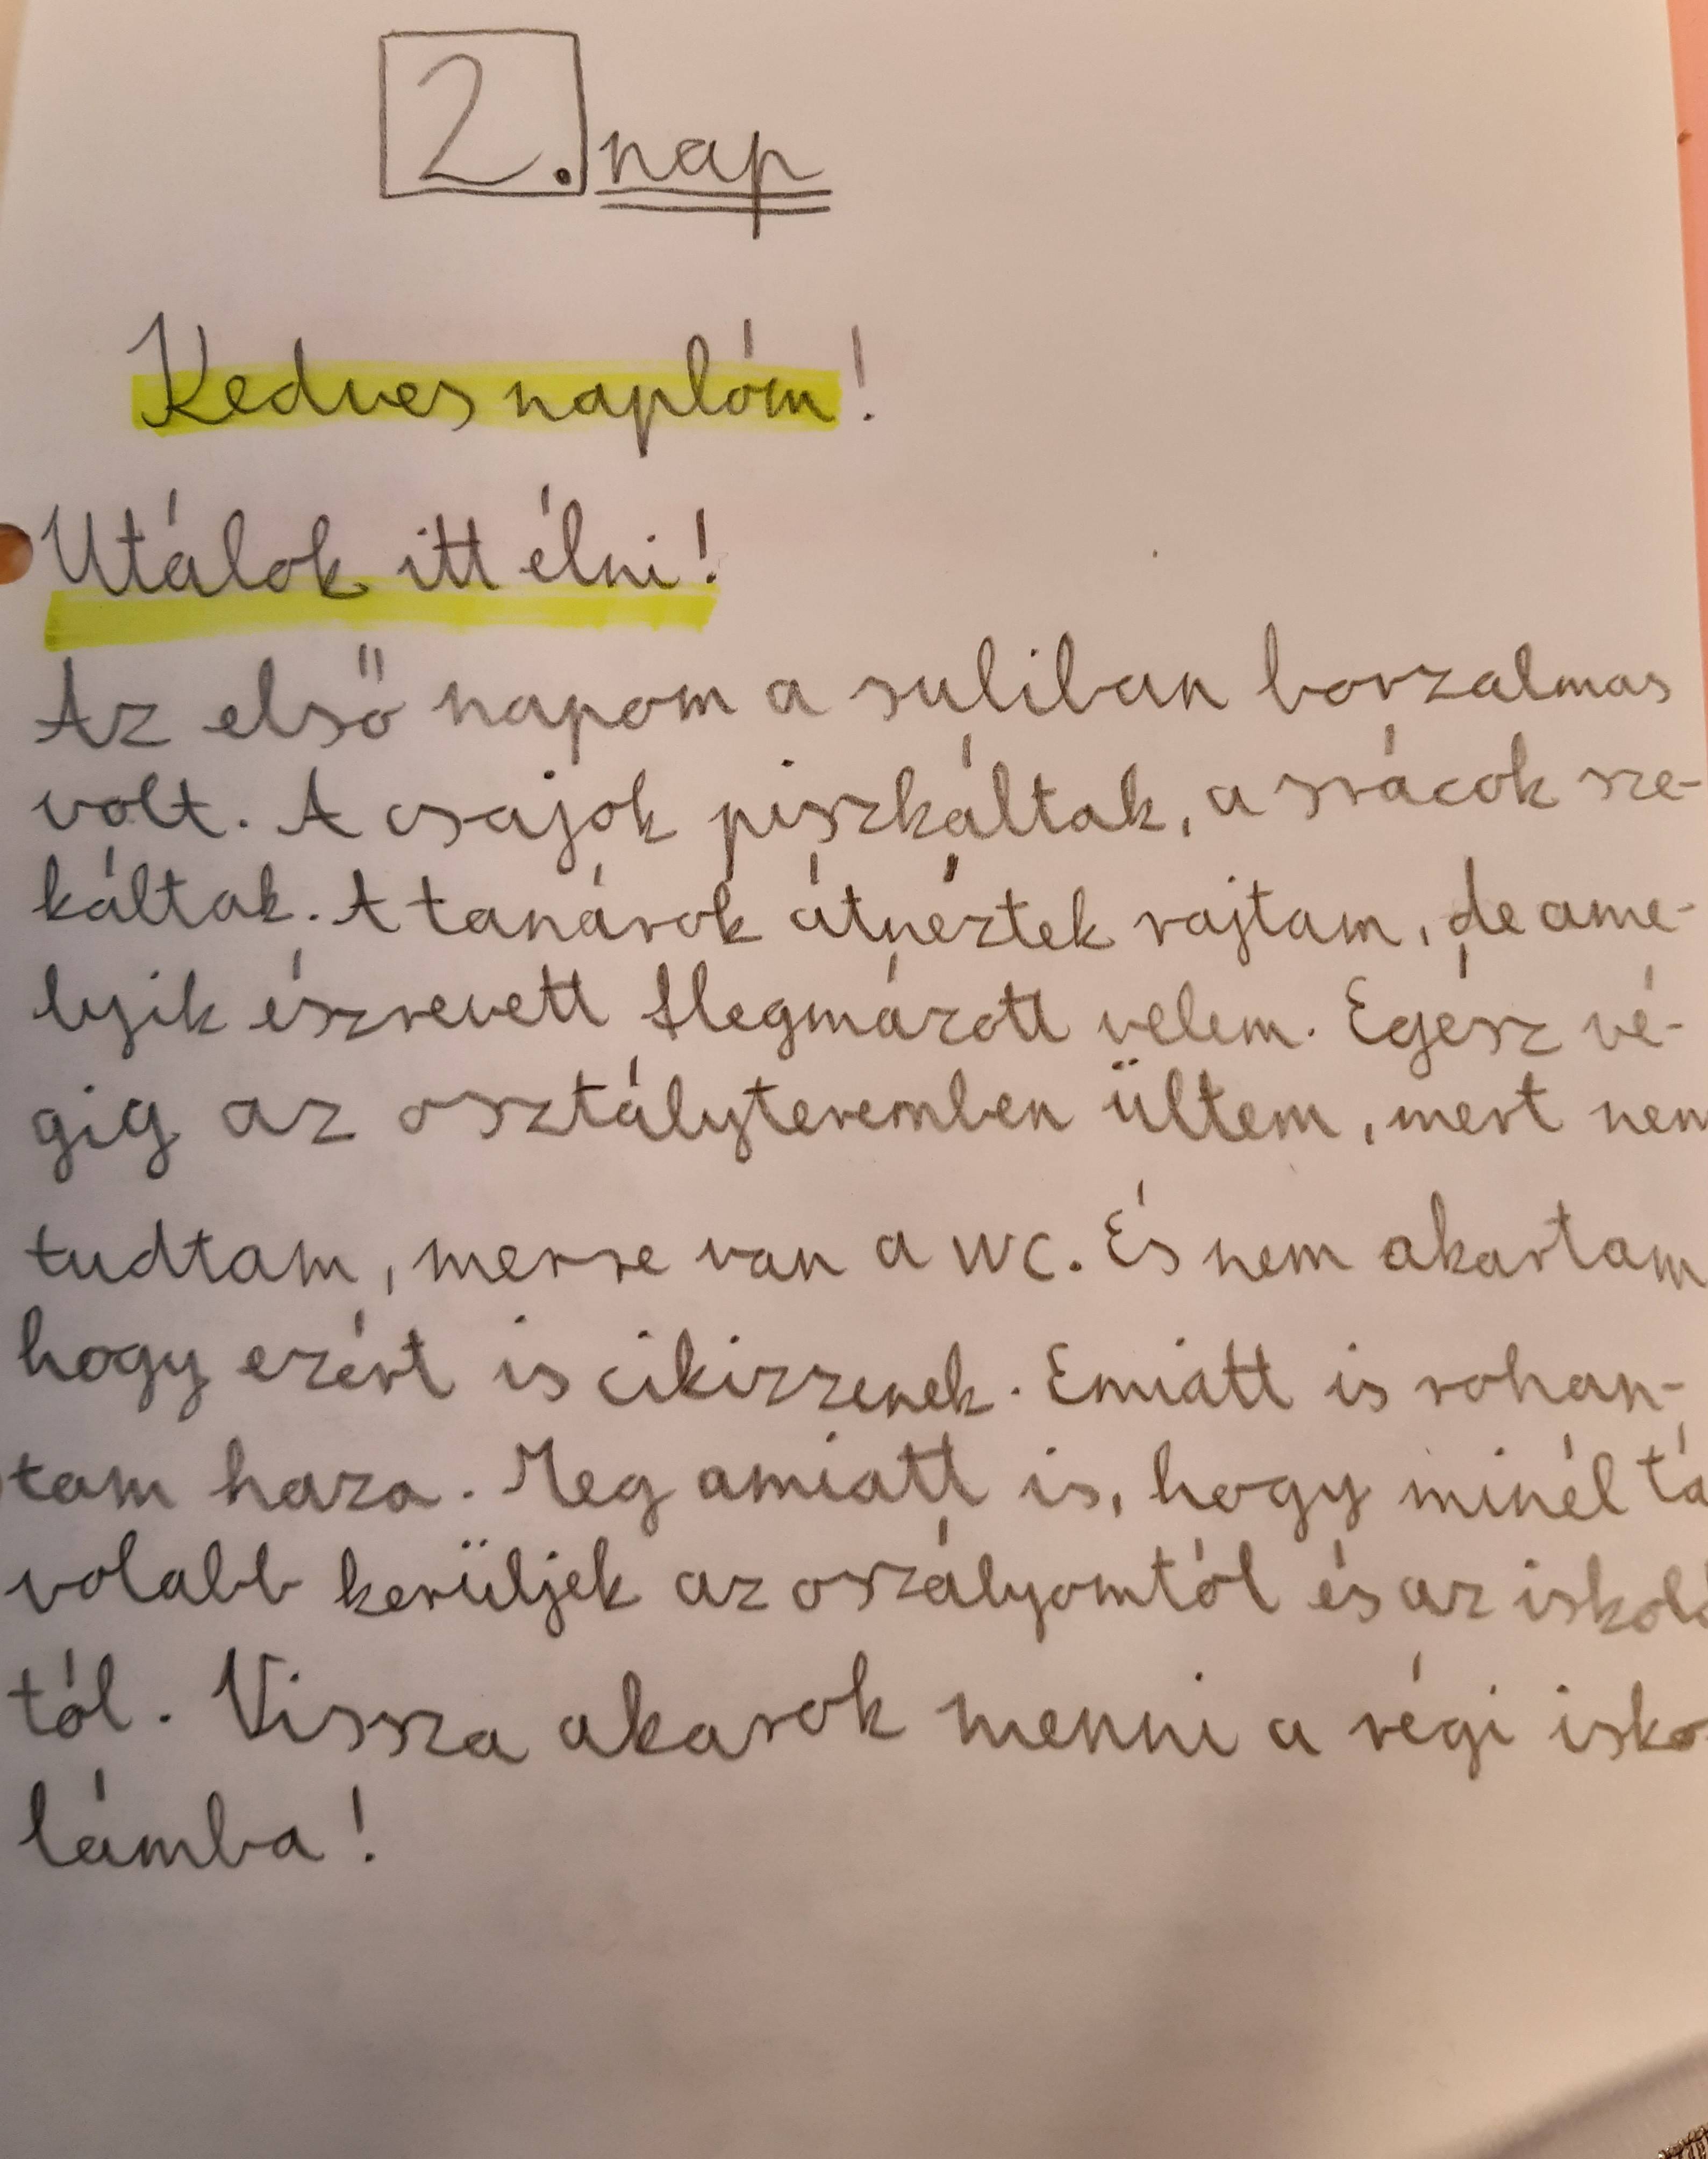 2. nap
Kedves naplóm!
Utálok itt élni!
Az első napom a suliban borzalmas
volt. A csajok piszkáltak, a srácok sze-
káltak. A tanárok átnéztek rajtam, de ame-
lyik észrevett flegmázott velem. Egész vé-
gig az osztályteremben ültem, mert nem
tudtam, merre van a WC. És nem akartam
hogy ezért is cikizzenek. Emiatt is rohan-
tam haza. Meg amiatt is, hogy minél tá
volabb kerüljek az oszályomtól és az iskolá
tól. Vissza akarok menni a régi isko-
lámba!